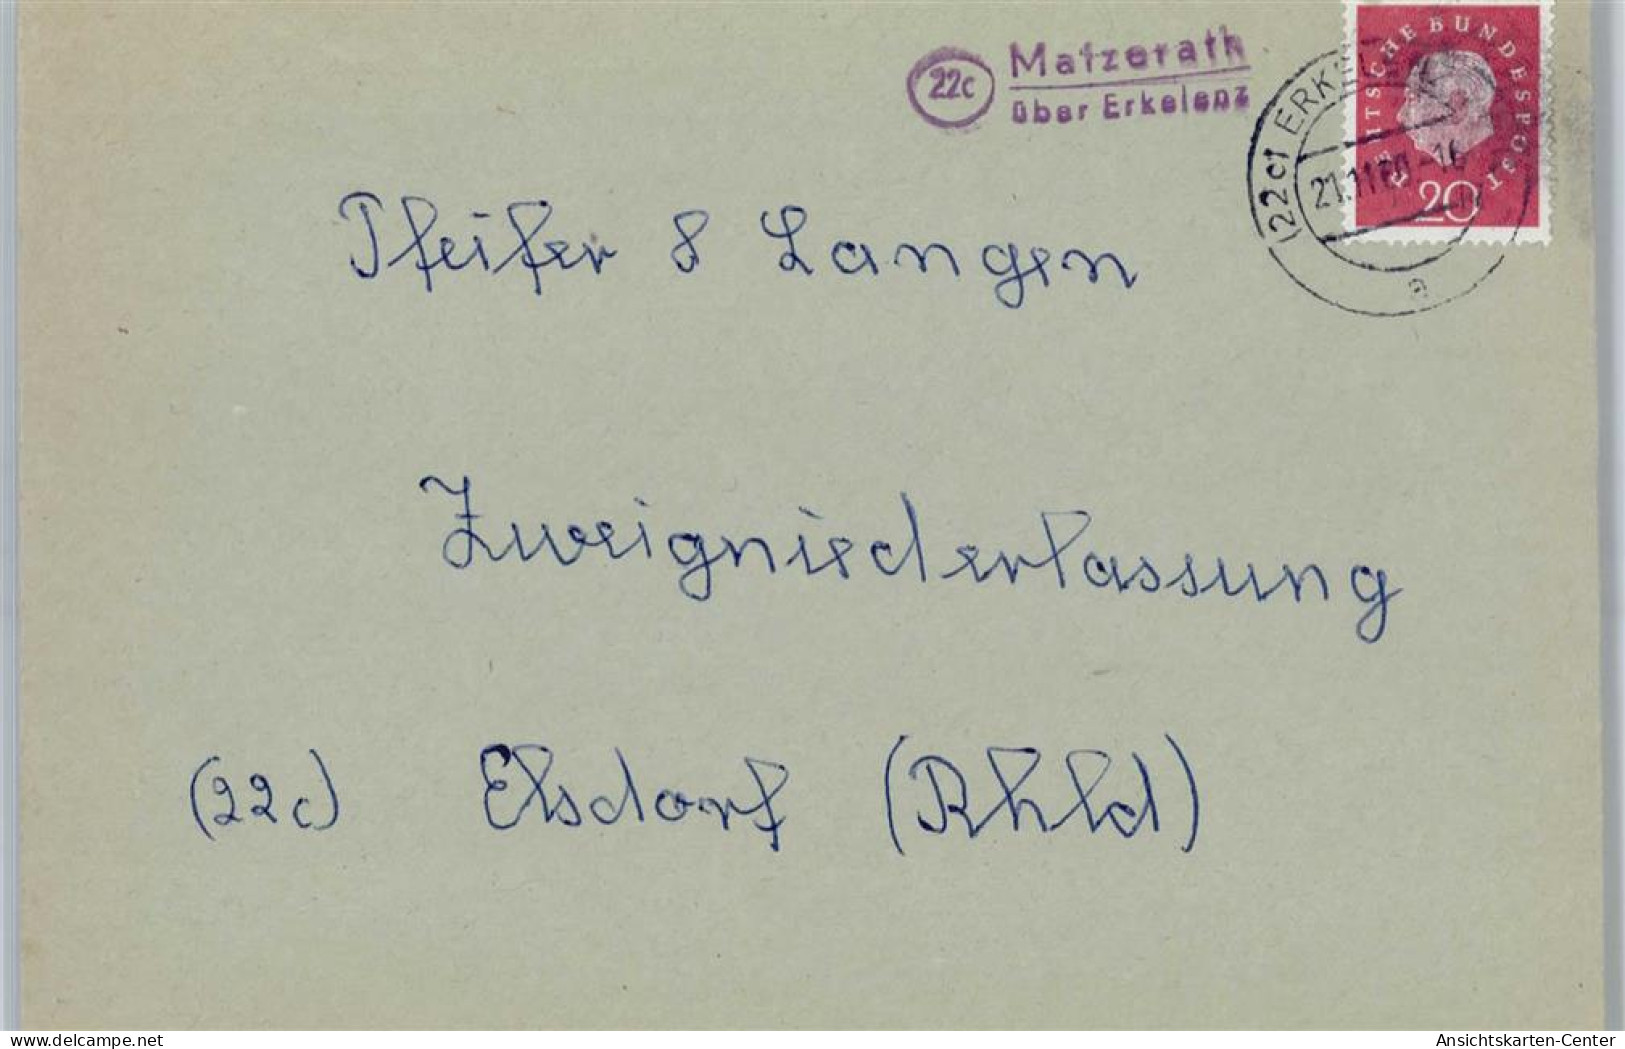 22c
Matzerath
über Erkelenz
DEUTSCHE BUNDESPOST
20
(22c) ERKELENZ
21.11.60-16
a
Pfeifer & Langen
Zweigniederlassung
(22c) Elsdorf (Rhld)
delcampe.net
Ansichtskarten-Center